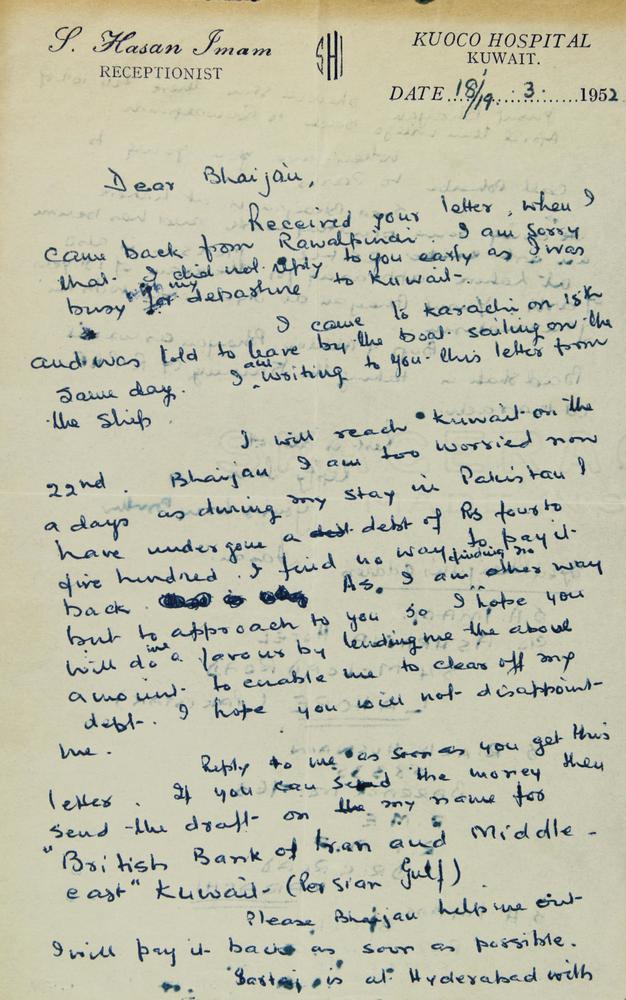 S. Hasan Imam
RECEPTIONIST
SHI
KUOCO HOSPITAL
KUWAIT.
DATE 18/19. 3. 1952
Dear Bhaijan,
Received your letter, when I
came back from Rawalpindi. I am sorry
that I did not reply to you early as I was
busy with my departure to Kuwait.
I came to Karachi on 18th
and was told to leave by the boat sailing on the
same day. I am writing to you this letter from
the Ship.
I will reach Kuwait on the
22nd. Bhaijan I am too worried now
a days as during my stay in Pakistan I
have undergone a debt of Rs four to
five hundred. I find no way to pay it
back. As, I am finding no other way
but to approach to you so I hope you
will do me a favour by lending me the above
amount to enable me to clear off my
debt. I hope you will not disappoint
me.
Reply to me as soon as you get this
letter. If you can send the money then
send the draft on the my name for
"British Bank of Iran and Middle-
east" Kuwait (Persian Gulf)
Please Bhaijan help me out
I will pay it back as soon as possible.
is at Hyderabad with